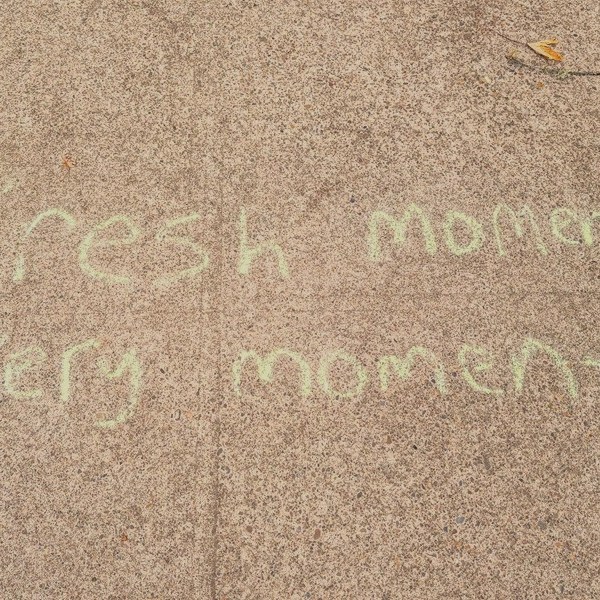 fresh momen
very moment